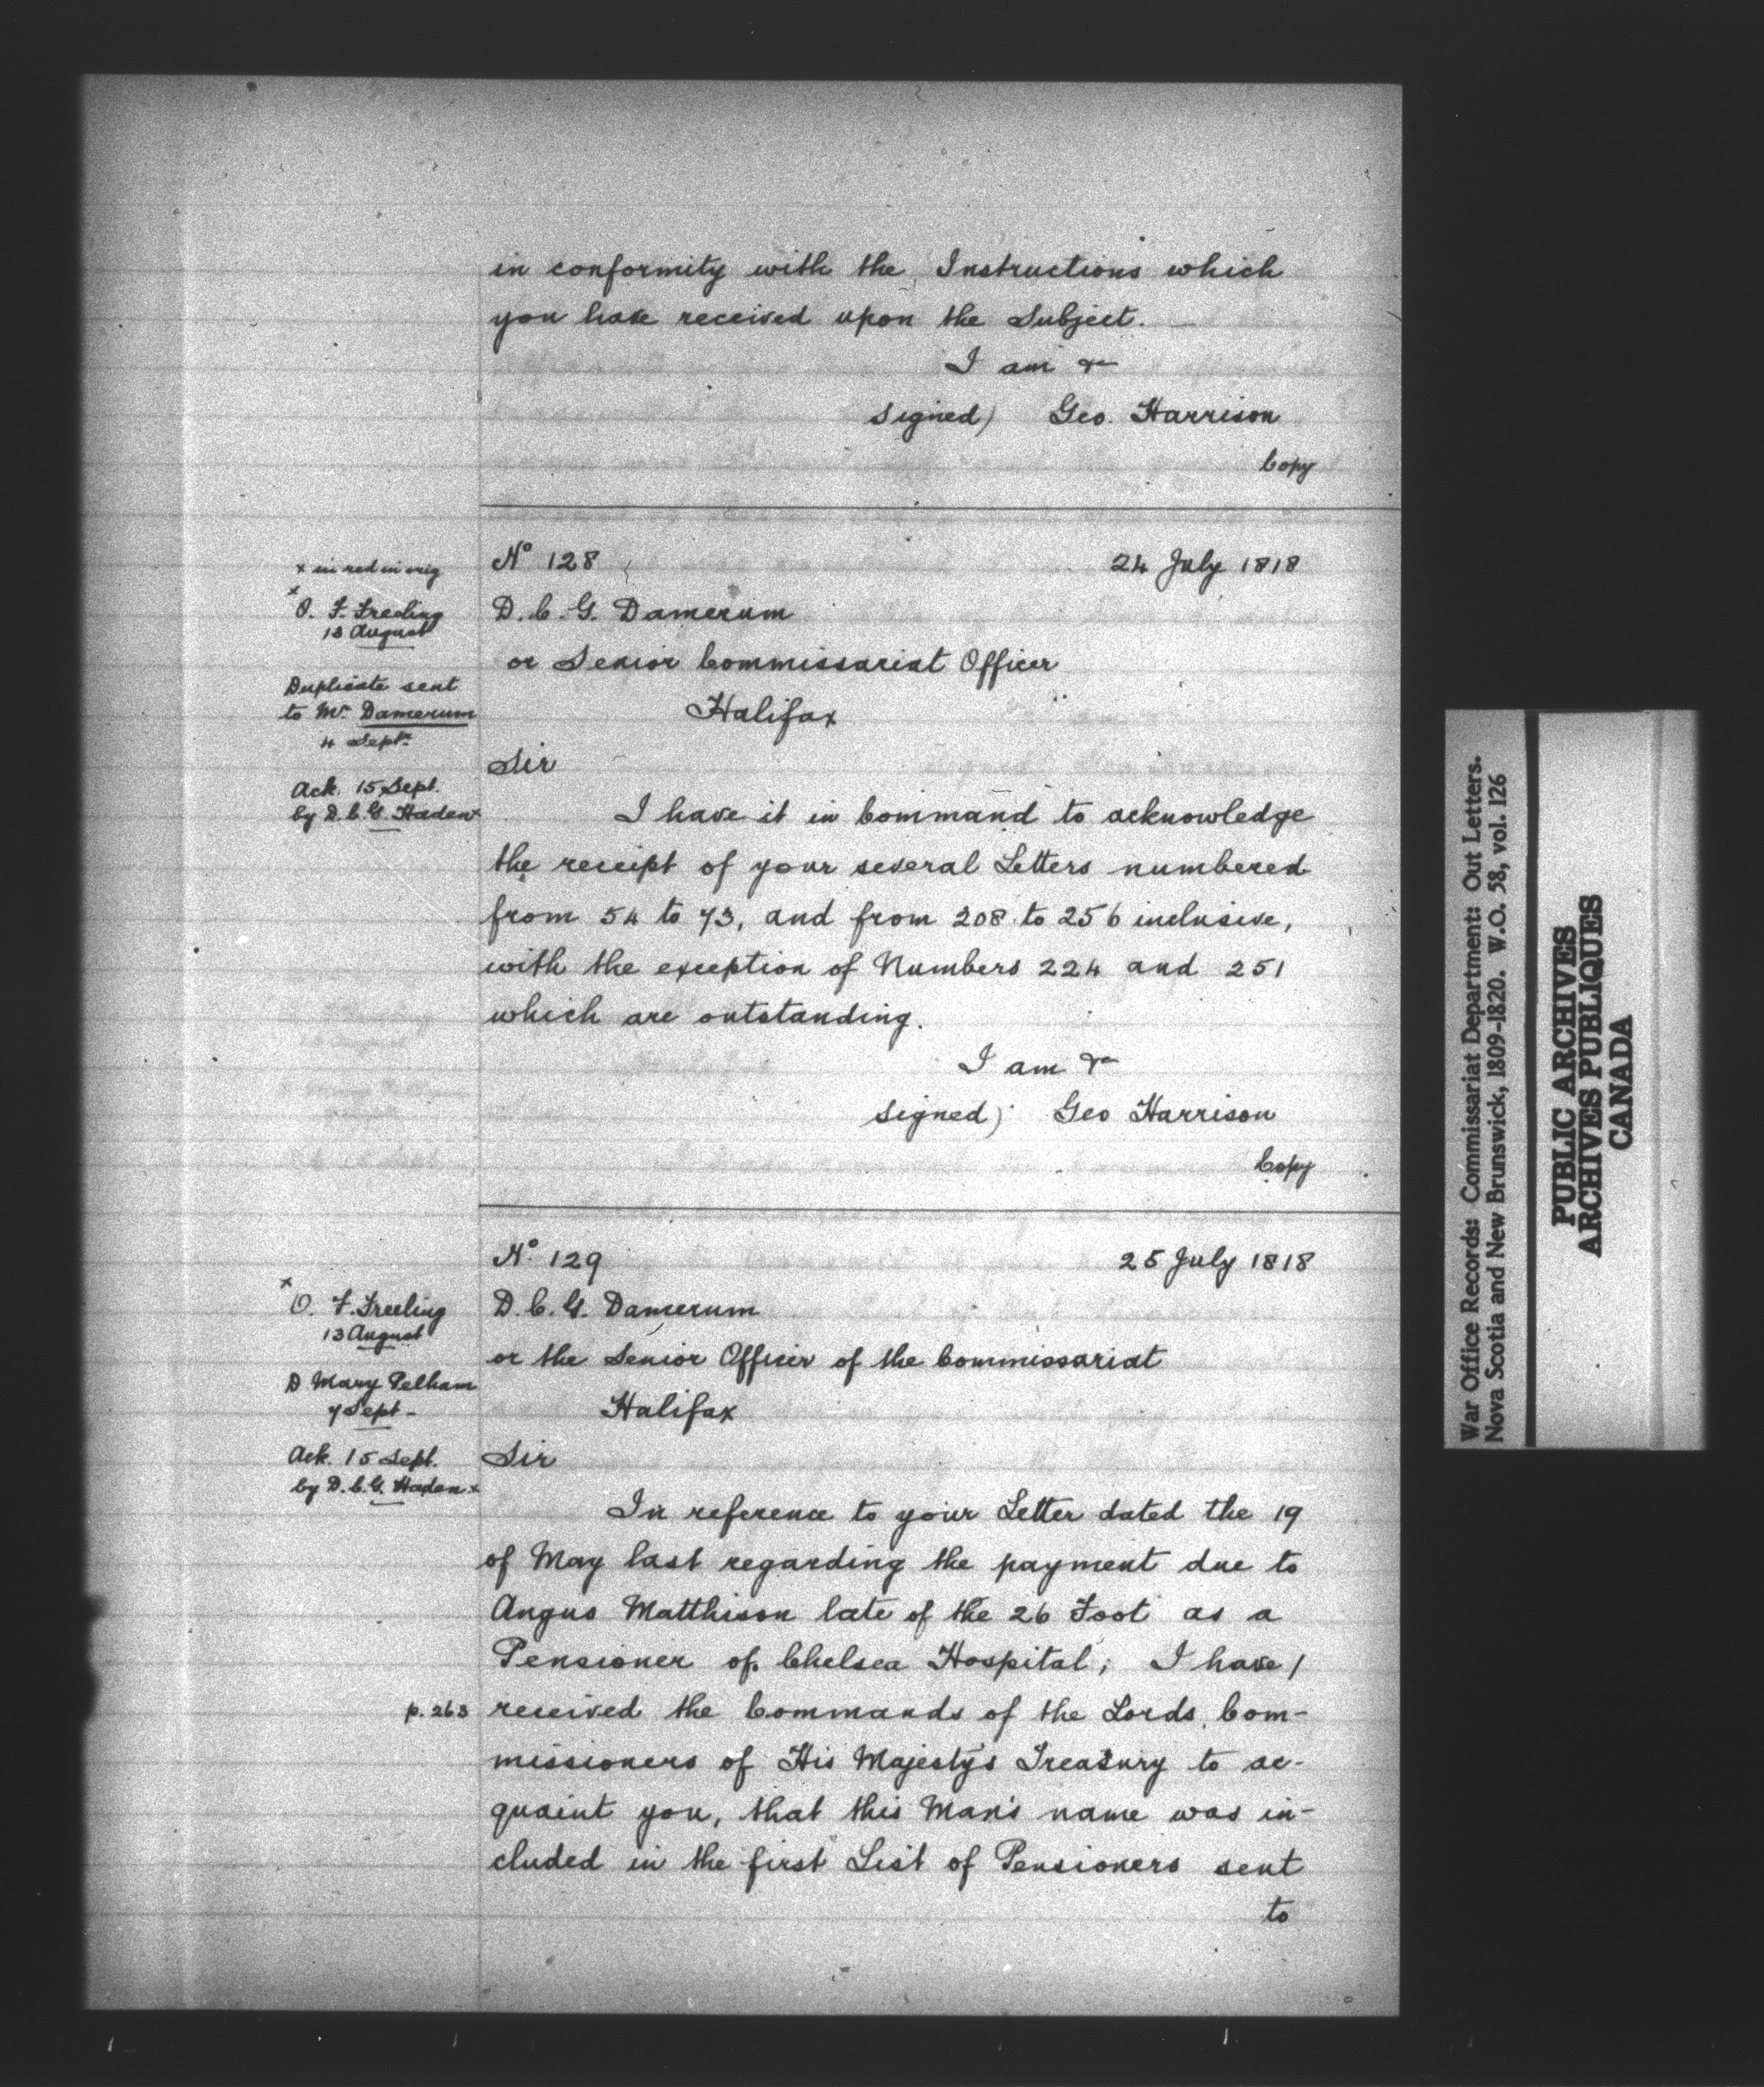 in conformity with the Instructions which
you have received upon the Subject.
I am &c
signed) Geo. Harrison
Copy
x in red in orig
x
O. F. Freeling
13 August
Duplicate sent
to Mr. Damerum
4 Sept.
Ack. 15 Sept.
by D.C.G. Haden x
No 128 24 July 1818
D.C.G. Damerum
or Senior Commissariat Officer
Halifax
Sir
I have it in Command to acknowledge
the receipt of your several Letters numbered
from 54 to 73, and from 208 to 256 inclusive,
with the exception of Numbers 224 and 251
which are outstanding.
I am &c
signed) Geo Harrison
Copy
x
O. F. Freeling
13 August
D Mary Pelham
7 Sept -
Ack. 15 Sept.
by D.C.G. Haden x
No. 129 25 July 1818
D.C.G. Damerum
or the Senior Officer of the Commissariat
Halifax
Sir
In reference to your Letter dated the 19
of May last regarding the payment due to
Angus Matthison late of the 26 Foot as a
Pensioner of Chelsea Hospital; I have /
p. 263 received the Commands of the Lords Com-
missioners of His Majesty's Treasury to ac-
quaint you, that this Man's name was in-
cluded in the first List of Pensioners sent
to
War Office Records: Commissariat Department: Out Letters.
Nova Scotia and New Brunswick, 1809-1820. W.O. 58, vol. 126
PUBLIC ARCHIVES
ARCHIVES PUBLIQUES
CANADA